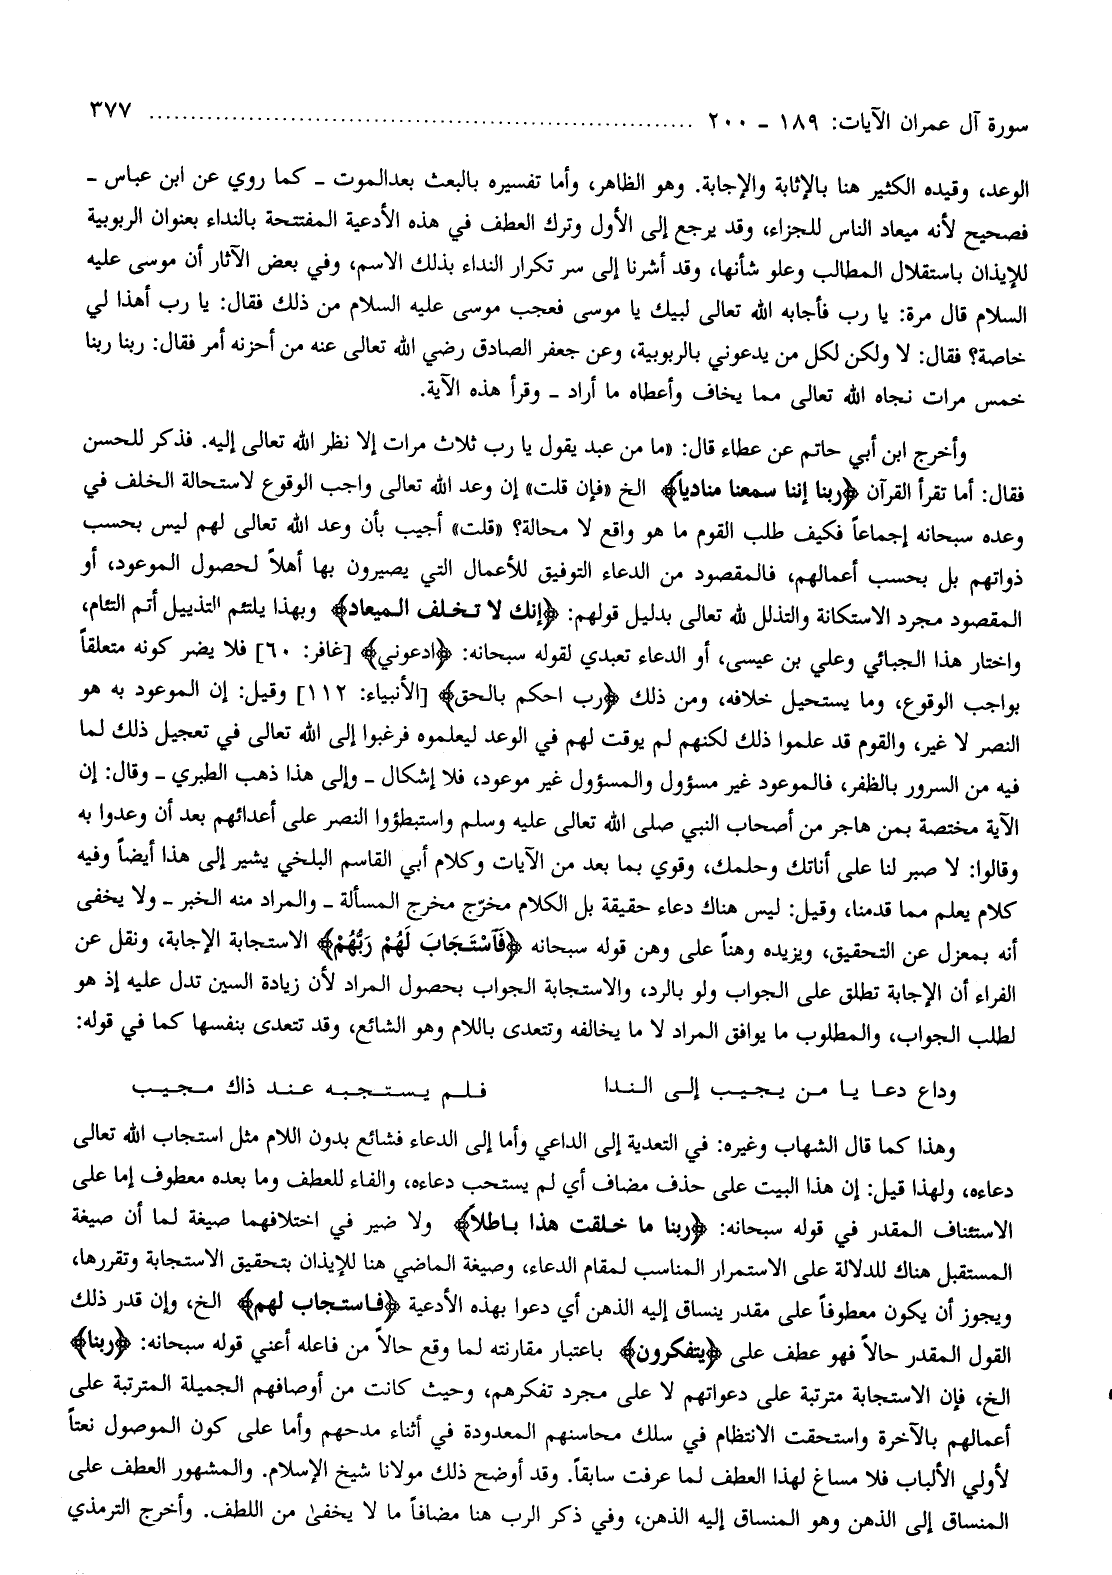 سورة آل عمران الآيات: ١٨٩ ـ ٢٠٠ ........................................................................ ٣٧٧
الوعد، وقيده الكثير هنا بالإثابة والإجابة. وهو الظاهر، وأما تفسيره بالبعث بعدالموت ـ كما روي عن ابن عباس ـ
فصحيح لأنه ميعاد الناس للجزاء، وقد يرجع إلى الأول وترك العطف في هذه الأدعية المفتتحة بالنداء بعنوان الربوبية
للإيذان باستقلال المطالب وعلو شأنها، وقد أشرنا إلى سر تكرار النداء بذلك الاسم، وفي بعض الآثار أن موسى عليه
السلام قال مرة: يا رب فأجابه الله تعالى لبيك يا موسى فعجب موسى عليه السلام من ذلك فقال: يا رب أهذا لي
خاصة؟ فقال: لا ولكن لكل من يدعوني بالربوبية، وعن جعفر الصادق رضي الله تعالى عنه من أحزنه أمر فقال: ربنا ربنا
خمس مرات نجاه الله تعالى مما يخاف وأعطاه ما أراد ـ وقرأ هذه الآية.
وأخرج ابن أبي حاتم عن عطاء قال: «ما من عبد يقول يا رب ثلاث مرات إلا نظر الله تعالى إليه. فذكر للحسن
فقال: أما تقرأ القرآن ﴿ربنا إننا سمعنا منادياً﴾ الخ «فإن قلت» إن وعد الله تعالى واجب الوقوع لاستحالة الخلف في
وعده سبحانه إجماعاً فكيف طلب القوم ما هو واقع لا محالة؟ «قلت» أجيب بأن وعد الله تعالى لهم ليس بحسب
ذواتهم بل بحسب أعمالهم، فالمقصود من الدعاء التوفيق للأعمال التي يصيرون بها أهلاً لحصول الموعود، أو
المقصود مجرد الاستكانة والتذلل لله تعالى بدليل قولهم: ﴿إنك لا تخلف الميعاد﴾ وبهذا يلتئم التذييل أتم التئام،
واختار هذا الجبائي وعلي بن عيسى، أو الدعاء تعبدي لقوله سبحانه: ﴿ادعوني﴾ [غافر: ٦٠] فلا يضر كونه متعلقاً
بواجب الوقوع، وما يستحيل خلافه، ومن ذلك ﴿رب احكم بالحق﴾ [الأنبياء: ١١٢] وقيل: إن الموعود به هو
النصر لا غير، والقوم قد علموا ذلك لكنهم لم يوقت لهم في الوعد ليعلموه فرغبوا إلى الله تعالى في تعجيل ذلك لما
فيه من السرور بالظفر، فالموعود غير مسؤول والمسؤول غير موعود، فلا إشكال ـ وإلى هذا ذهب الطبري ـ وقال: إن
الآية مختصة بمن هاجر من أصحاب النبي صلى الله تعالى عليه وسلم واستبطؤوا النصر على أعدائهم بعد أن وعدوا به
وقالوا: لا صبر لنا على أناتك وحلمك، وقوي بما بعد من الآيات وكلام أبي القاسم البلخي يشير إلى هذا أيضاً وفيه
كلام يعلم مما قدمنا، وقيل: ليس هناك دعاء حقيقة بل الكلام مخرّج مخرج المسألة ـ والمراد منه الخبر ـ ولا يخفى
أنه بمعزل عن التحقيق، ويزيده وهناً على وهن قوله سبحانه ﴿فَآسْتَجَابَ لَهُمْ رَبُّهُمْ﴾ الاستجابة الإجابة، ونقل عن
الفراء أن الإجابة تطلق على الجواب ولو بالرد، والاستجابة الجواب بحصول المراد لأن زيادة السين تدل عليه إذ هو
لطلب الجواب، والمطلوب ما يوافق المراد لا ما يخالفه وتتعدى باللام وهو الشائع، وقد تتعدى بنفسها كما في قوله:
وداع دعا يا من يجيب إلى الندا فلم يستجبه عند ذاك مجيب
وهذا كما قال الشهاب وغيره: في التعدية إلى الداعي وأما إلى الدعاء فشائع بدون اللام مثل استجاب الله تعالى
دعاءه، ولهذا قيل: إن هذا البيت على حذف مضاف أي لم يستحب دعاءه، والفاء للعطف وما بعده معطوف إما على
الاستئناف المقدر في قوله سبحانه: ﴿ربنا ما خلقت هذا باطلاً﴾ ولا ضير في اختلافهما صيغة لما أن صيغة
المستقبل هناك للدلالة على الاستمرار المناسب لمقام الدعاء، وصيغة الماضي هنا للإيذان بتحقيق الاستجابة وتقررها،
ويجوز أن يكون معطوفاً على مقدر ينساق إليه الذهن أي دعوا بهذه الأدعية ﴿فاستجاب لهم﴾ الخ، وإن قدر ذلك
القول المقدر حالاً فهو عطف على ﴿يتفكرون﴾ باعتبار مقارنته لما وقع حالاً من فاعله أعني قوله سبحانه: ﴿ربنا﴾
الخ، فإن الاستجابة مترتبة على دعواتهم لا على مجرد تفكرهم، وحيث كانت من أوصافهم الجميلة المترتبة على
أعمالهم بالآخرة واستحقت الانتظام في سلك محاسنهم المعدودة في أثناء مدحهم وأما على كون الموصول نعتاً
لأولي الألباب فلا مساغ لهذا العطف لما عرفت سابقاً. وقد أوضح ذلك مولانا شيخ الإسلام. والمشهور العطف على
المنساق إلى الذهن وهو المنساق إليه الذهن، وفي ذكر الرب هنا مضافاً ما لا يخفىٰ من اللطف. وأخرج الترمذي